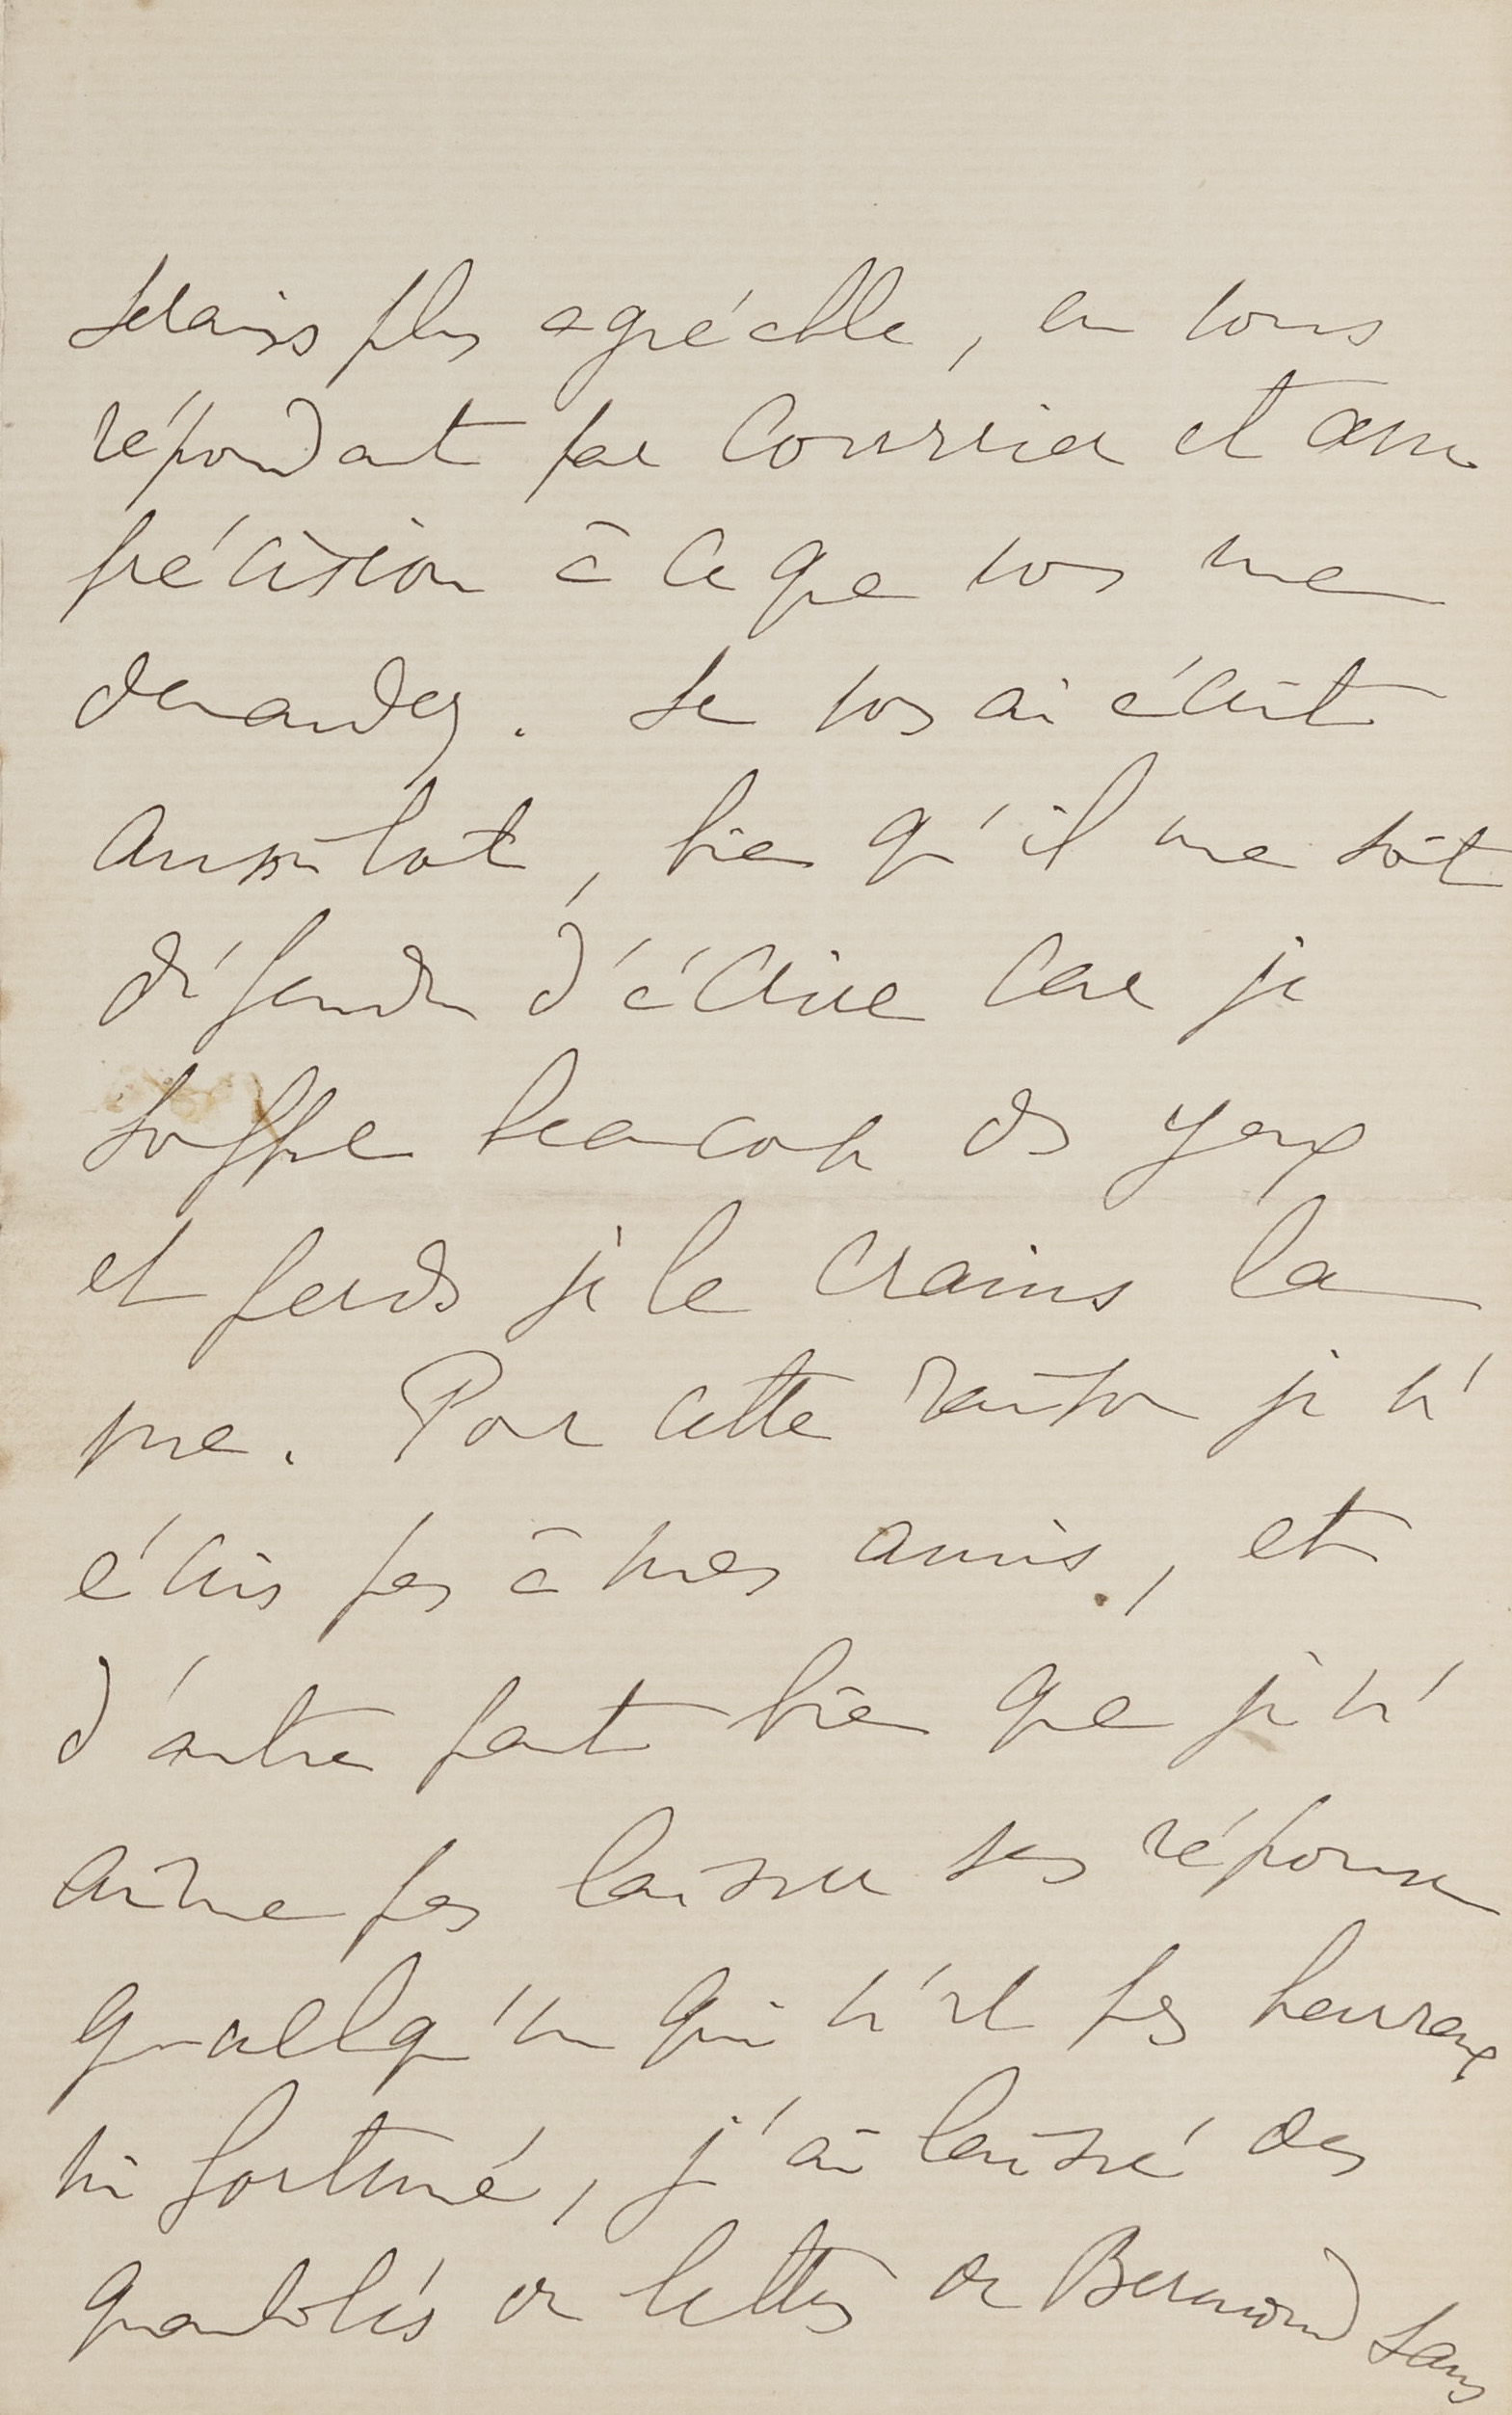 serais plus agréable, en vous
répondant par courrier et avec
précision à ce que vous me
demandez. Je vous ai écrit
aussitôt, bien qu'il me soit
défendu d'écrire car je
souffre beaucoup des yeux
et perds je le crains la
vue. Pour cette raison je n'
écris pas à mes amis, et
d'autre part bien que je n'
aime pas laisser sans réponse
quelqu'un qui n'est pas heureux
ni fortuné, j'ai laissé des
quantités de lettres de Bermond sans